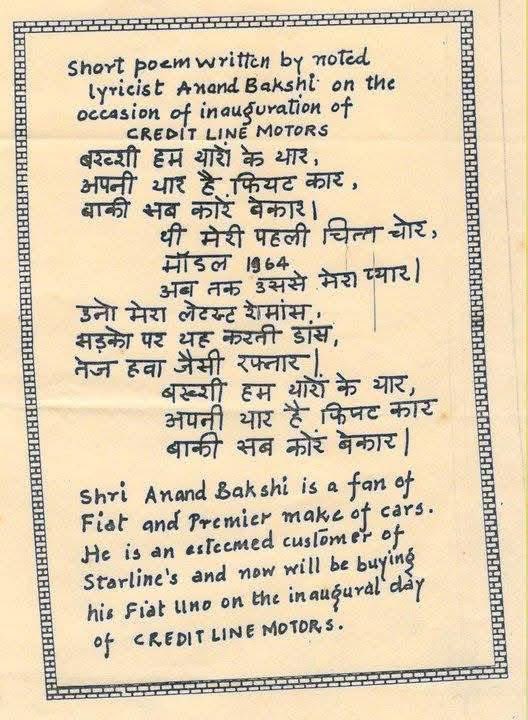 Short poem written by noted
lyricist Anand Bakshi on the
occasion of inauguration of
CREDIT LINE MOTORS
बख्शी हम यारों के यार,
अपनी यार है फियट कार,
बाकी सब कारें बेकार।
थी मेरी पहली चित्त चोर,
मॉडल 1964
अब तक उससे मेरा प्यार।
उनो मेरा लेटस्ट रोमांस,
सड़को पर यह करती डांस,
तेज हवा जैसी रफ्तार।
बख्शी हम यारों के यार,
अपनी यार है फियट कार
बाकी सब कारें बेकार।
Shri Anand Bakshi is a fan of
Fiat and Premier make of cars.
He is an esteemed customer of
Starline's and now will be buying
his Fiat Uno on the inaugural day
of CREDIT LINE MOTORS.